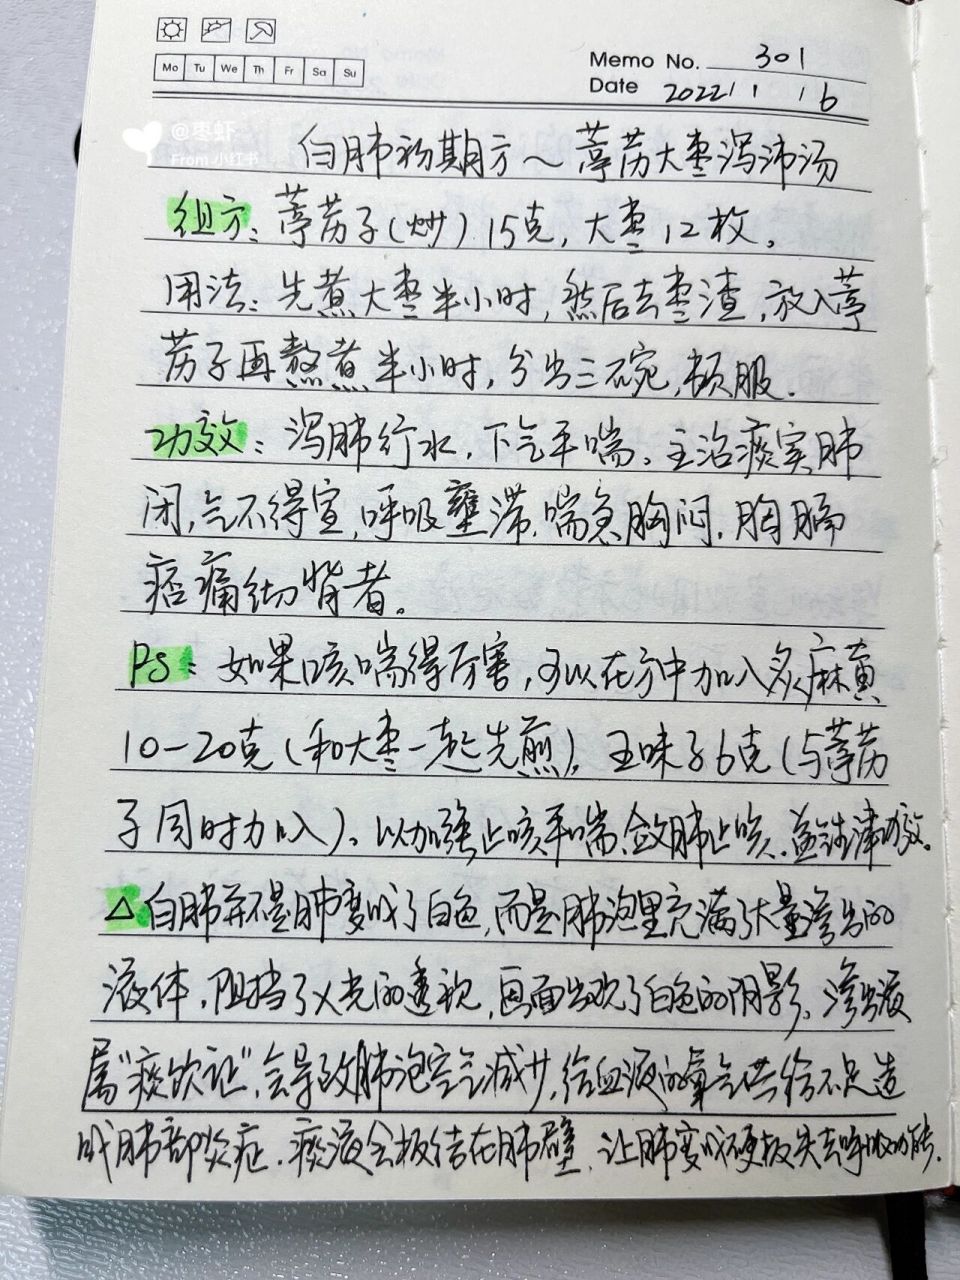 Mo Tu We Th Fr Sa Su
Memo No. 301
Date 2022/1/16
@枣虾
From 小红书
白肺初期方～葶苈大枣泻沛汤
组方：葶苈子(炒)15克，大枣12枚。
用法：先煮大枣半小时，然后去枣渣，放入葶
苈子再熬煮半小时，分出三碗，顿服.
功效：泻肺行水，下气平喘。主治痰实肺
闭，气不得宣，呼吸壅滞，喘急胸闷，胸膈
痞痛彻背者。
PS：如果咳喘得厉害，可以在方中加入炙麻黄
10-20克(和大枣一起先煎)，五味子6克(与葶苈
子同时加入)，以加强止咳平喘、敛肺止咳、益津功效。
△白肺并不是肺变成了白色，而是肺泡里充满了大量渗出的
液体，阻挡了X光的透视，画面出现了白色的阴影。渗出液
属“痰饮证”，会导致肺泡空气减少，给血液的氧气供给不足造
成肺部炎症，痰液会板结在肺壁，让肺变成硬板失去呼吸功能.